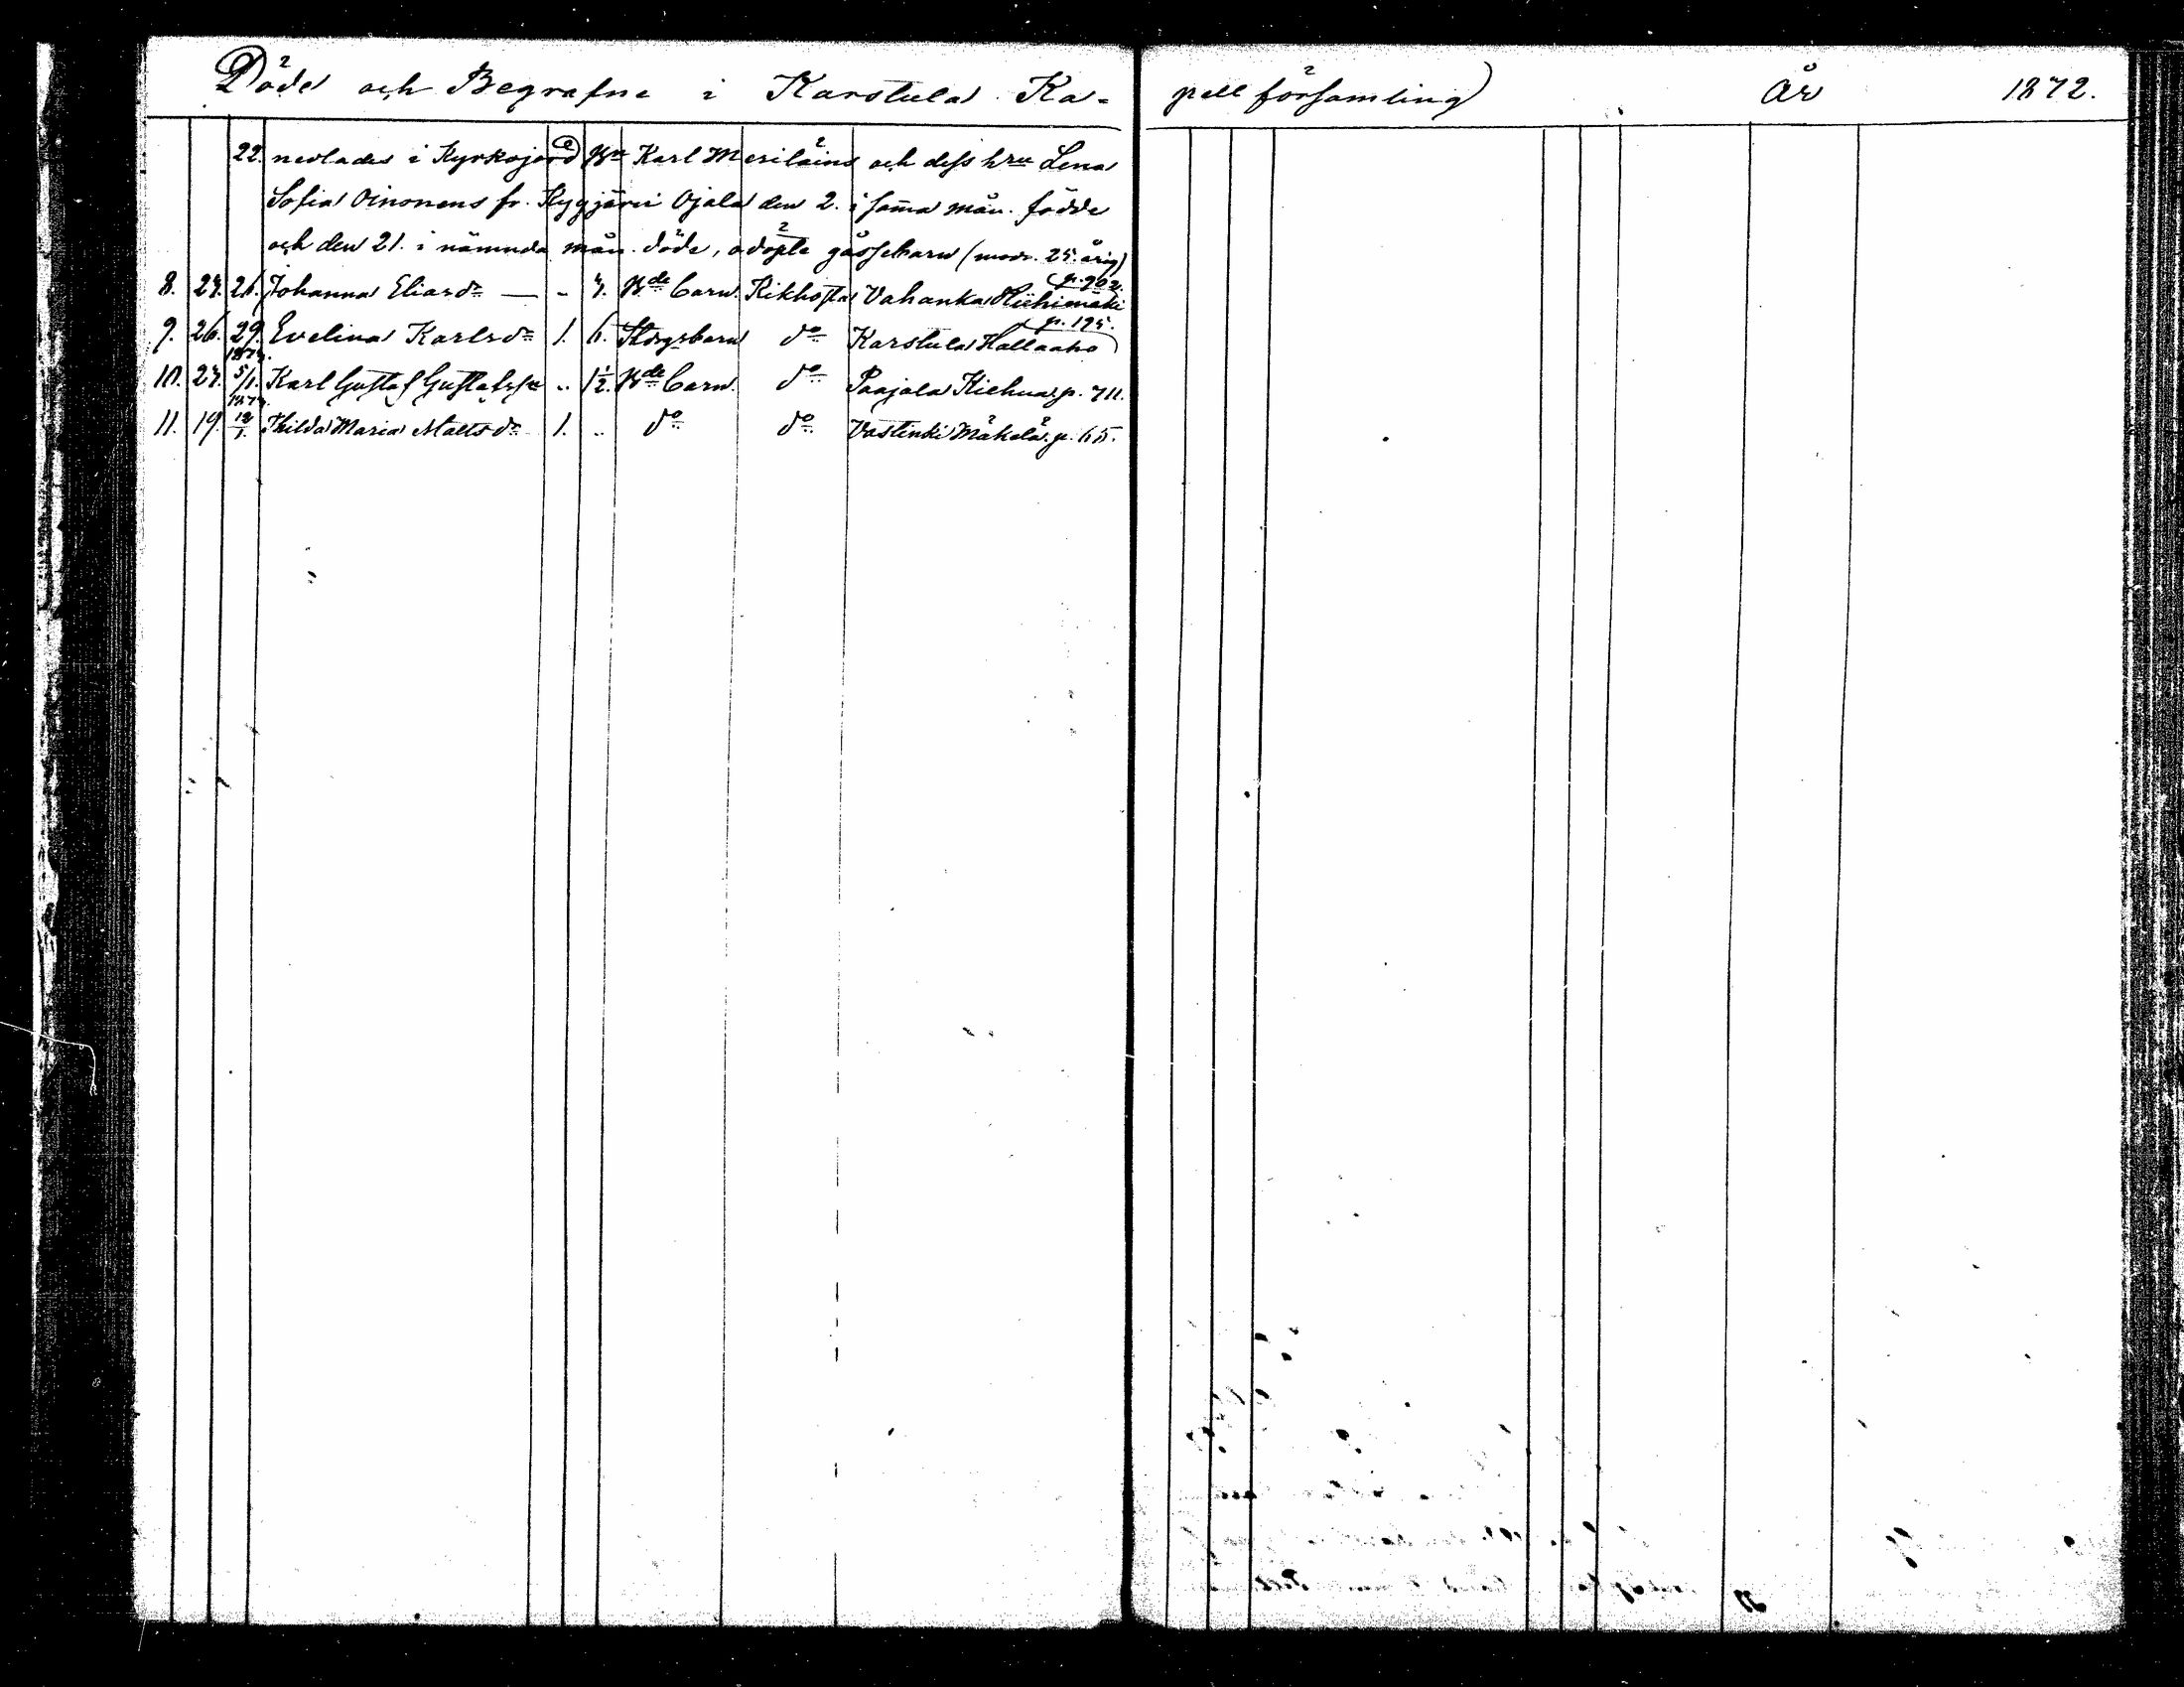 Döde och Begrafne i Karstula Ka-
pell församling År 1872.
22. nedlades i Kyrkojord Bn Karl Meriläins och dess hru Lena
Sofia Oinonens fr. Kyyjärvi Ojala den 2. i samma mån. födde
och den 21. i nämnda mån. döde, odöpte gåssebarn (modr. 25. årig)
p. 202.
8. 24. 26. Johanna Eliasdr — - 7. Bde barn. Kikhosta Vahanka Riihimäki
p. 195.
9. 26. 29. Evelina Karlsdr 1. 6. barn do Karstula Hallaaho
1873.
10. 27. 5/1. Karl Gustaf Gustafsson .. 1½. Bde barn. do Paajala Kiehua p. 711.
1873.
11. 19. 12/1. Hilda Maria Matsdr 1. .. do do Vastinki Mäkelä p. 65.